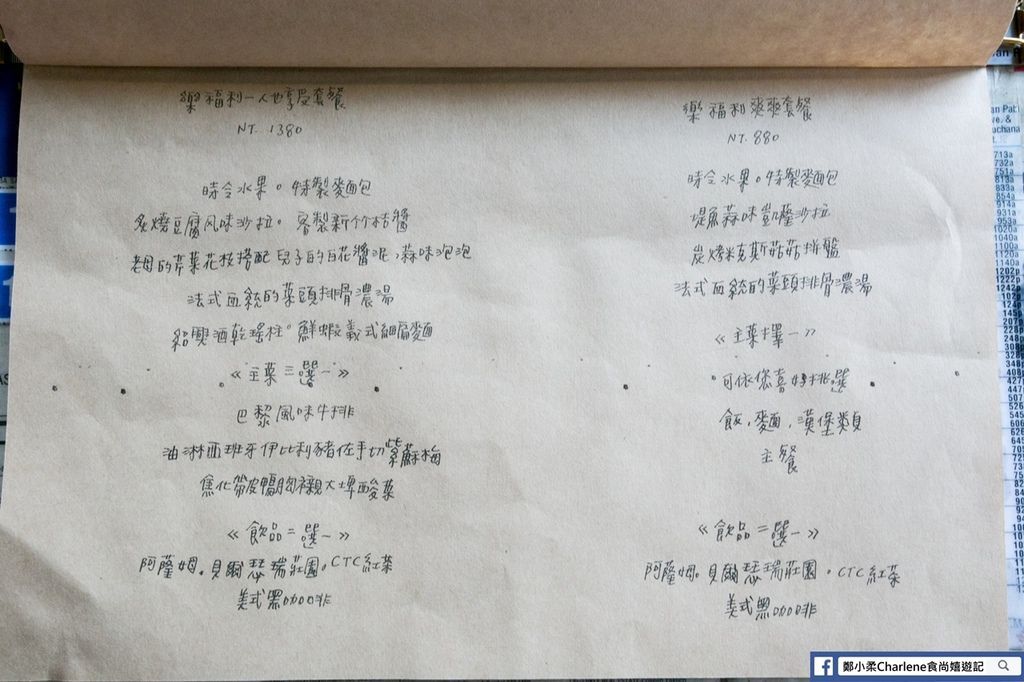 樂福利一人也享受套餐
NT. 1380
時令水果。特製麵包
炙燒豆腐風味沙拉。客製新竹桔醬
老母的芹菜花枝搭配兒子的百花醬泥，蒜味泡泡
法式血統的菜頭排骨濃湯
紹興酒乾瑤柱。鮮蝦義式細扁麵
《主菜三選一》
巴黎風味牛排
油淋西班牙伊比利豬佐手切紫蘇梅
焦化帶皮鴨胸襯大埤酸菜
《飲品二選一》
阿薩姆。貝爾瑟瑞莊園。CTC紅茶
美式黑咖啡
樂福利爽爽套餐
NT. 880
時令水果。特製麵包
堤魚蒜味凱薩沙拉
炭烤米克斯菇菇拼盤
法式血統的菜頭排骨濃湯
《主菜擇一》
可依您喜好排選
飯，麵，漢堡類
主餐
《飲品二選一》
阿薩姆。貝爾瑟瑞莊園。CTC紅茶
美式黑咖啡
鄭小柔Charlene食尚嬉遊記